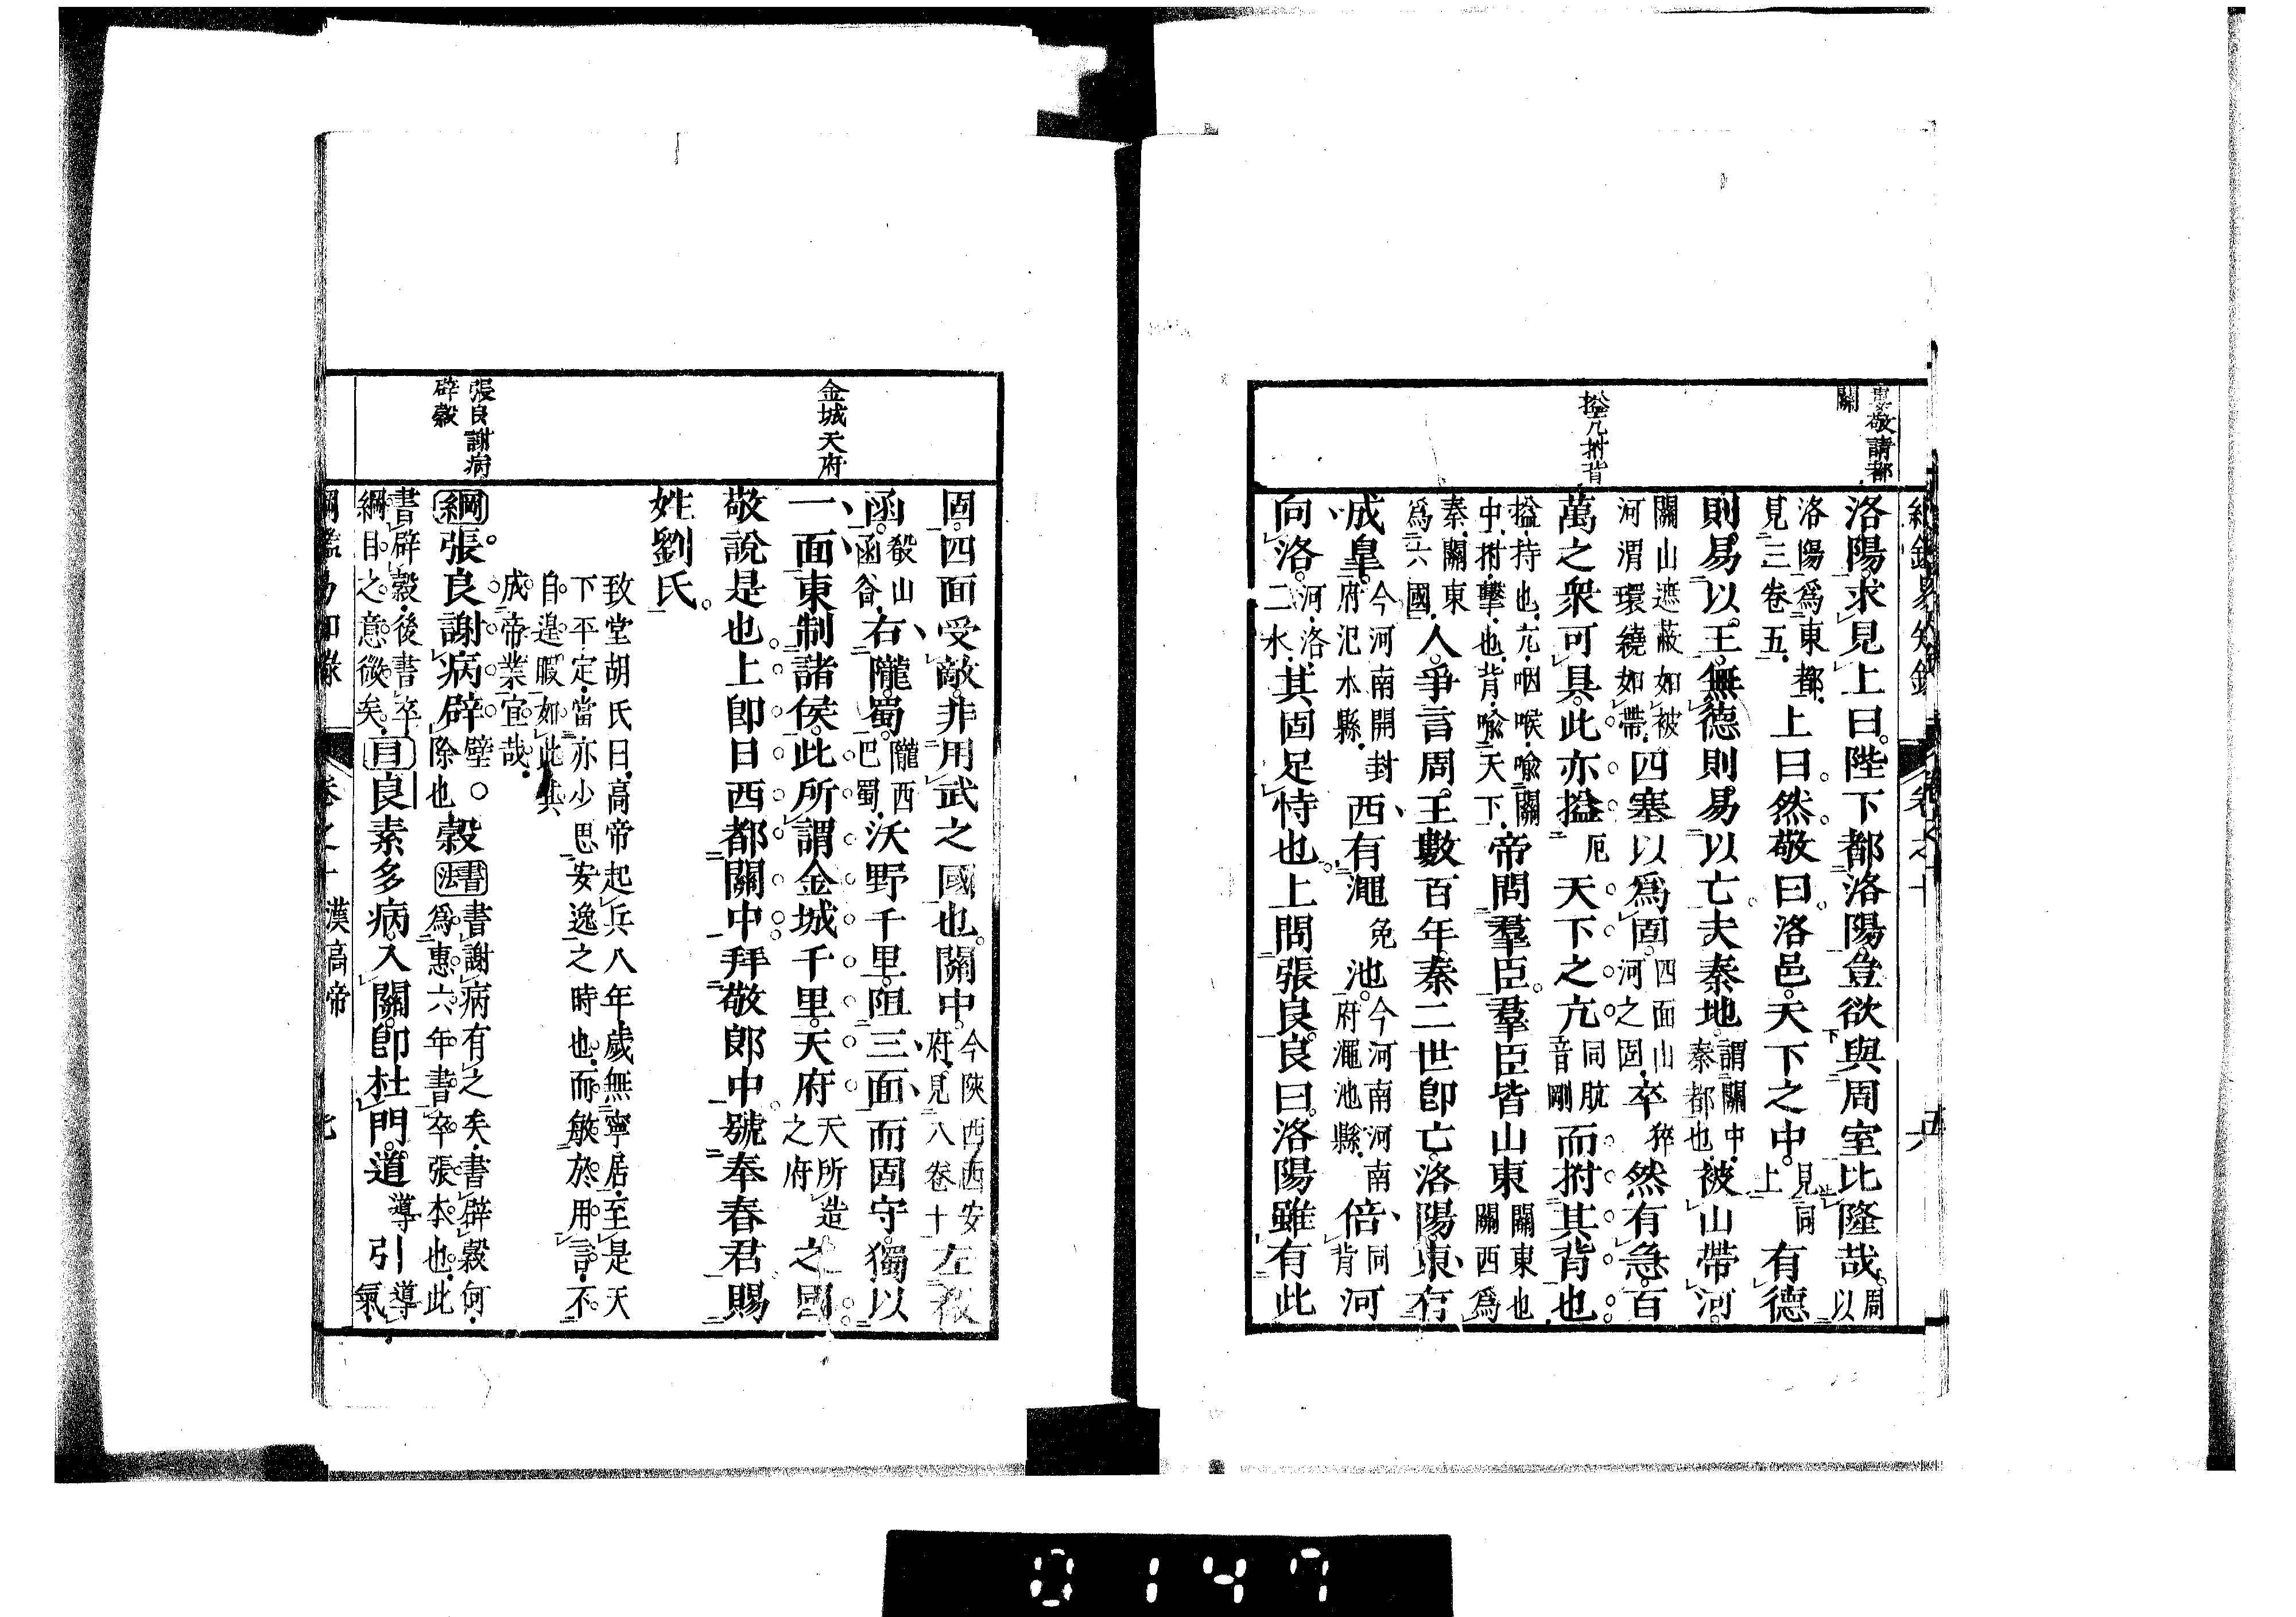 婁敬請都
關
搤亢拊背
洛陽求見上曰陛下都洛陽豈欲與周室比隆哉周以
洛陽爲東都
見三卷五
上曰然敬曰洛邑天下之中見同上有德
則易以王無德則易以亡夫秦地謂關中秦都也被山帶河
關山遮蔽如被
河渭環繞如帶
四塞以爲固四面山河之固卒猝然有急百
萬之衆可具此亦搤厄天下之亢同肮音剛而拊其背也
搤持也亢咽喉喻關
中拊擊也背喻天下
帝問羣臣羣臣皆山東關東也關西爲
秦關東
爲六國
人爭言周王數百年秦二世卽亡洛陽東有
成皐今河南開封府汜水縣西有澠免池今河南河南府澠池縣倍同背河
向洛河洛二水其固足恃也上問張良良曰洛陽雖有此
金城天府
張良謝病
辟穀
固四面受敵非用武之國也關中今陝西西安府見八卷十左殽
函殽山函谷右隴蜀隴西巴蜀沃野千里阻三面而固守獨以
一面東制諸侯此所謂金城千里天府天所造之府之國
敬說是也上卽日西都關中拜敬郎中號奉春君賜
姓劉氏
致堂胡氏曰高帝起兵八年歲無寧居至是天
下平定當亦少思安逸之時也而敏於用言不
自遑暇如此其
成帝業宜哉
綱張良謝病辟壁○除也穀書法書謝病有之矣書辟穀何
爲惠六年書卒張本也此
書辟穀後書卒
綱目之意微矣
目良素多病入關卽杜門道導引導氣
漢高帝
0147